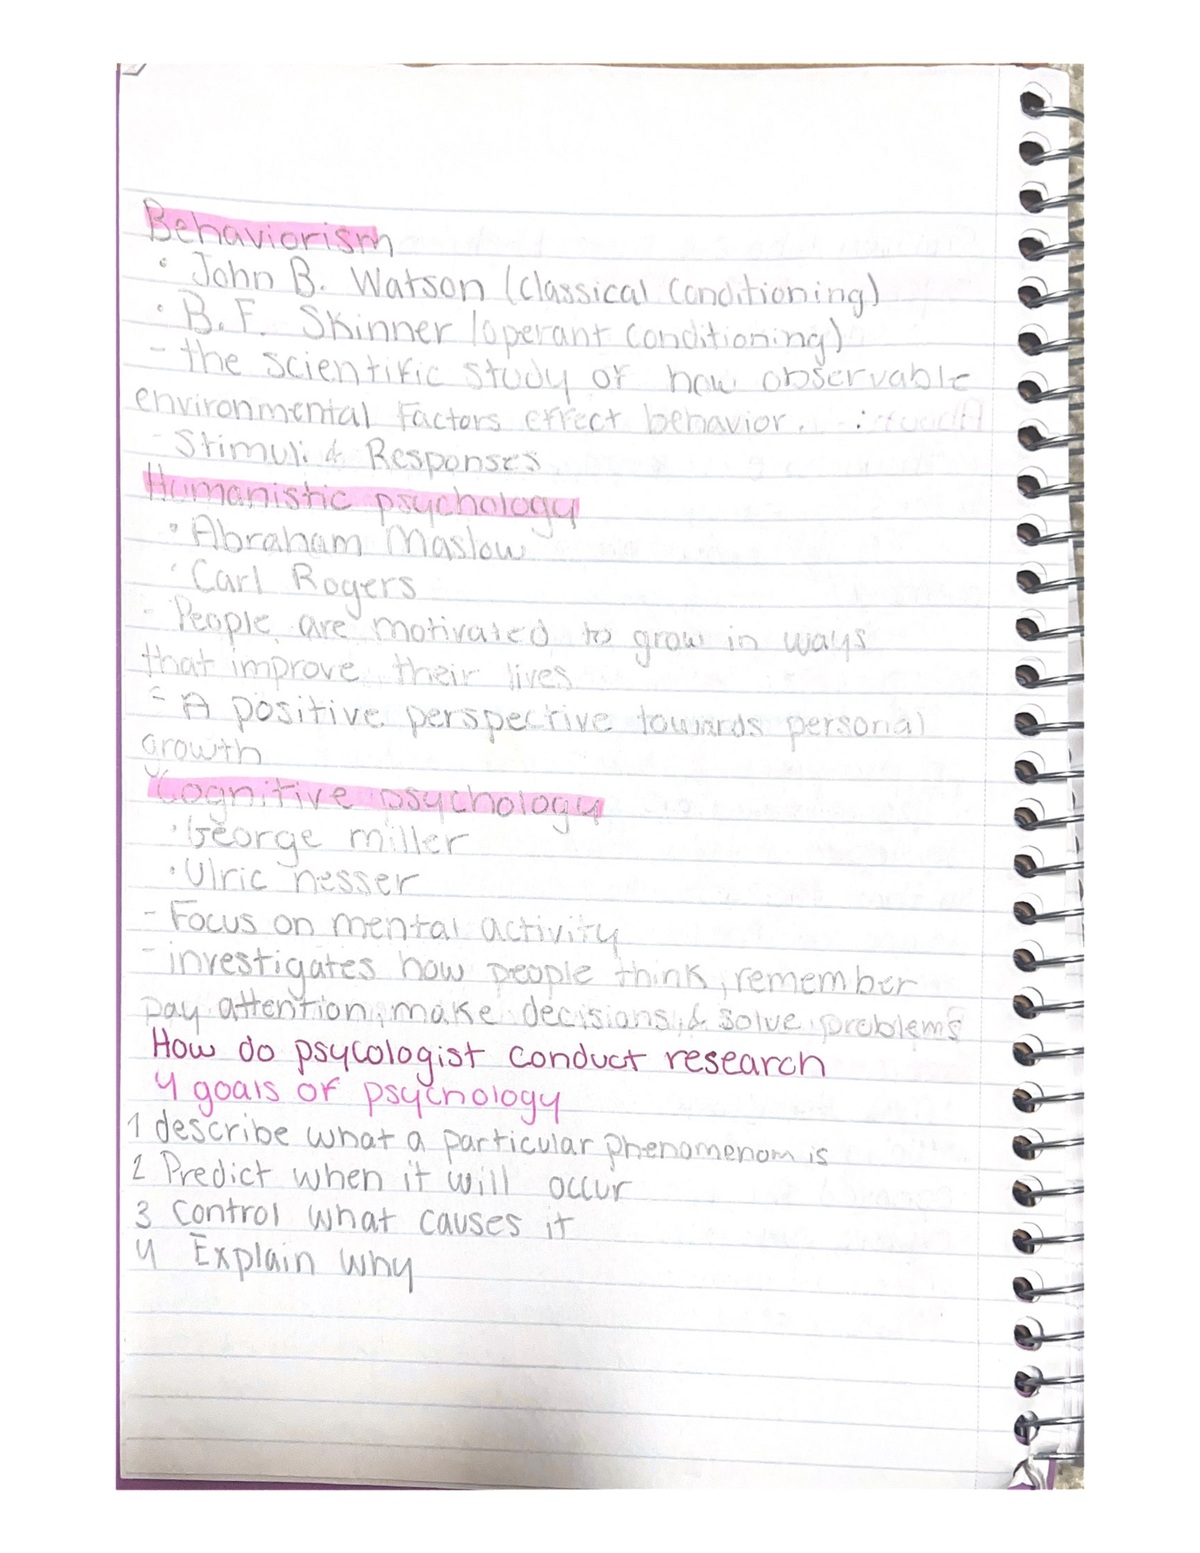 Behaviorism
• John B. Watson (Classical Conditioning)
• B.F. Skinner (operant Conditioning)
- the scientific study of how observable
environmental factors effect behavior.
- Stimuli & Responses
Humanistic psychology
• Abraham Maslow
• Carl Rogers
- People are motivated to grow in ways
that improve their lives
- A positive perspective towards personal
growth
Cognitive psychology
• George miller
• Ulric nesser
- Focus on mental activity
- investigates how people think, remember
pay attention, make decisions, & solve problems
How do psycologist conduct research
4 goals of psychology
1 describe what a particular phenomenom is
2 Predict when it will occur
3 Control what causes it
4 Explain why